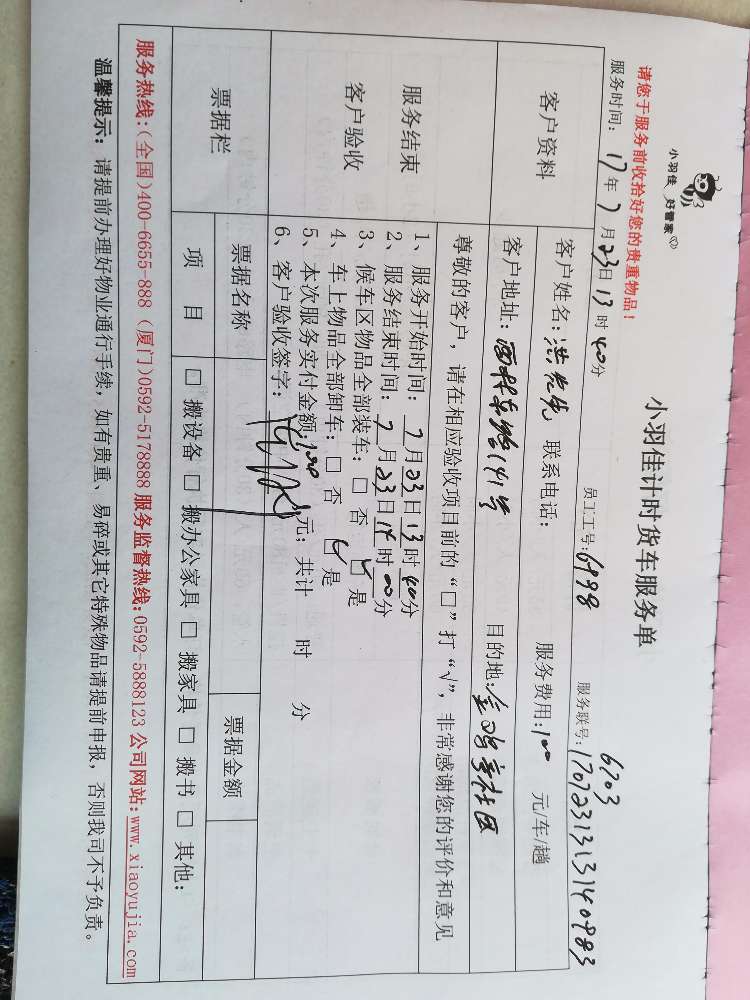 小羽佳 好管家
请您于服务前收拾好您的贵重物品!
小羽佳计时货车服务单
6703
服务时间: 17年7月23日13时40分 员工工号:6998 服务联号:1707231313140983
客户资料
客户姓名:洪先生 联系电话: 服务费用:100 元/车/趟
客户地址: 西林东路141号 目的地:
服务结束
客户验收
尊敬的客户,请在相应验收项目前的“□”打“√”,非常感谢您的评价和意见
1、服务开始时间:7月23日13时40分
2、服务结束时间:7月23日14时00分
3、候车区物品全部装车:□ 否 ☑ 是
4、车上物品全部卸车:□ 否 ☑ 是
5、本次服务实付金额:100元;共计 时 分
6、客户验收签字:
票据栏
票据名称 票据金额
项 目 □ 搬设备 □ 搬办公家具 □ 搬家具 □ 搬书 □ 其他:
服务热线:(全国)400-6655-888 (厦门)0592-5178888 服务监督热线:0592-5888123 公司网站:www.xiaoyujia.com
温馨提示: 请提前办理好物业通行手续,如有贵重、易碎或其它特殊物品请提前申报,否则我司不予负责。